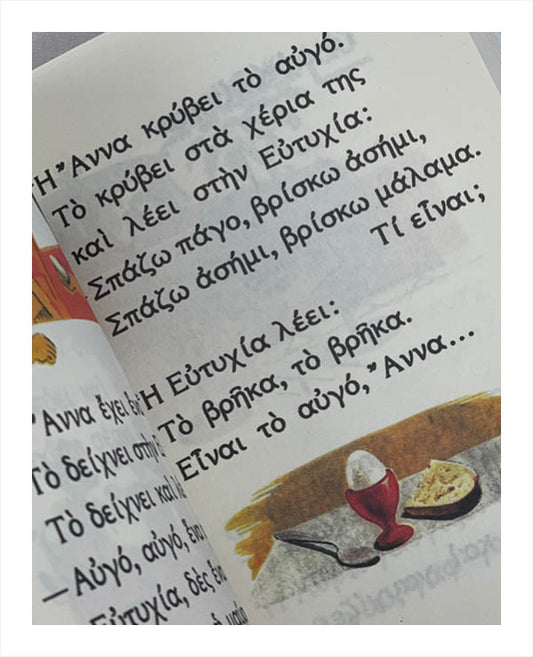 Ἡ Ἄννα κρύβει τὸ αὐγό.
Τὸ κρύβει στὰ χέρια της
καὶ λέει στὴν Εὐτυχία:
Σπάζω πάγο, βρίσκω ἀσήμι,
Σπάζω ἀσήμι, βρίσκω μάλαμα.
Τί εἶναι;
Ἡ Εὐτυχία λέει:
Τὸ βρῆκα, τὸ βρῆκα.
Εἶναι τὸ αὐγό, Ἄννα...
Ἄννα ἔχει
Τὸ δείχνει στὴ
Τὸ δείχνει καὶ
—Αὐγό, αὐγό,
Εὐτυχία, δὲς